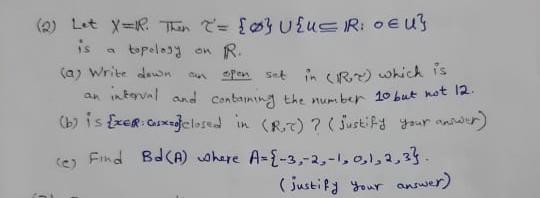 (2) Let X=ℝ. Then τ = {∅} ∪ {u ⊆ ℝ : 0 ∈ u}
is a topology on ℝ.
(a) Write down an open set in (ℝ,τ) which is
an interval and containing the number 10 but not 12.
(b) is {x∈ℝ : cosx=0} closed in (ℝ,τ) ? (justify your answer)
(c) Find Bd(A) where A={-3,-2,-1,0,1,2,3}.
(justify your answer)